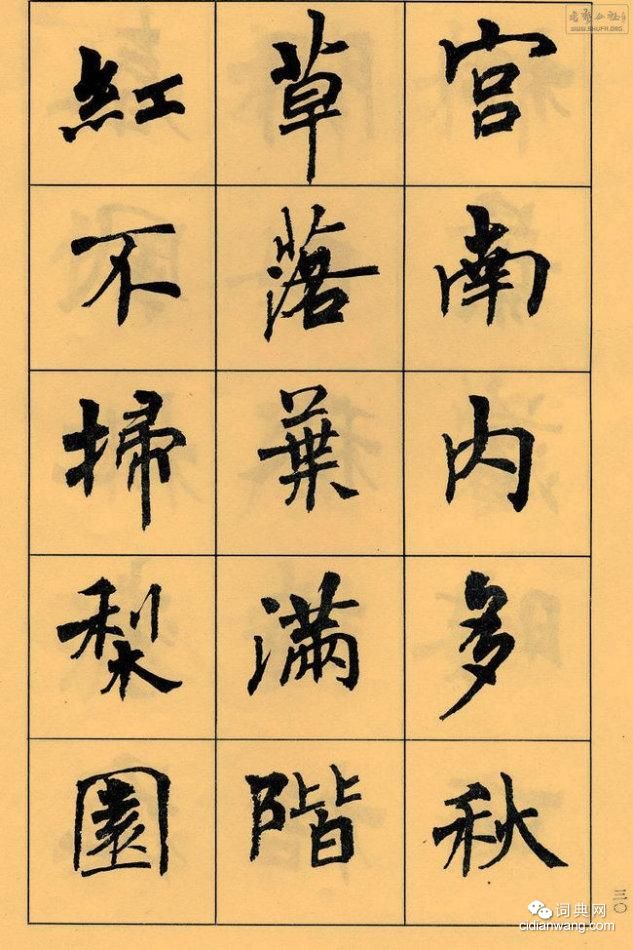 宮南內多秋
草落葉滿階
紅不掃梨園
三〇
WWW.SHUFA.ORG
词典网
cidianwang.com